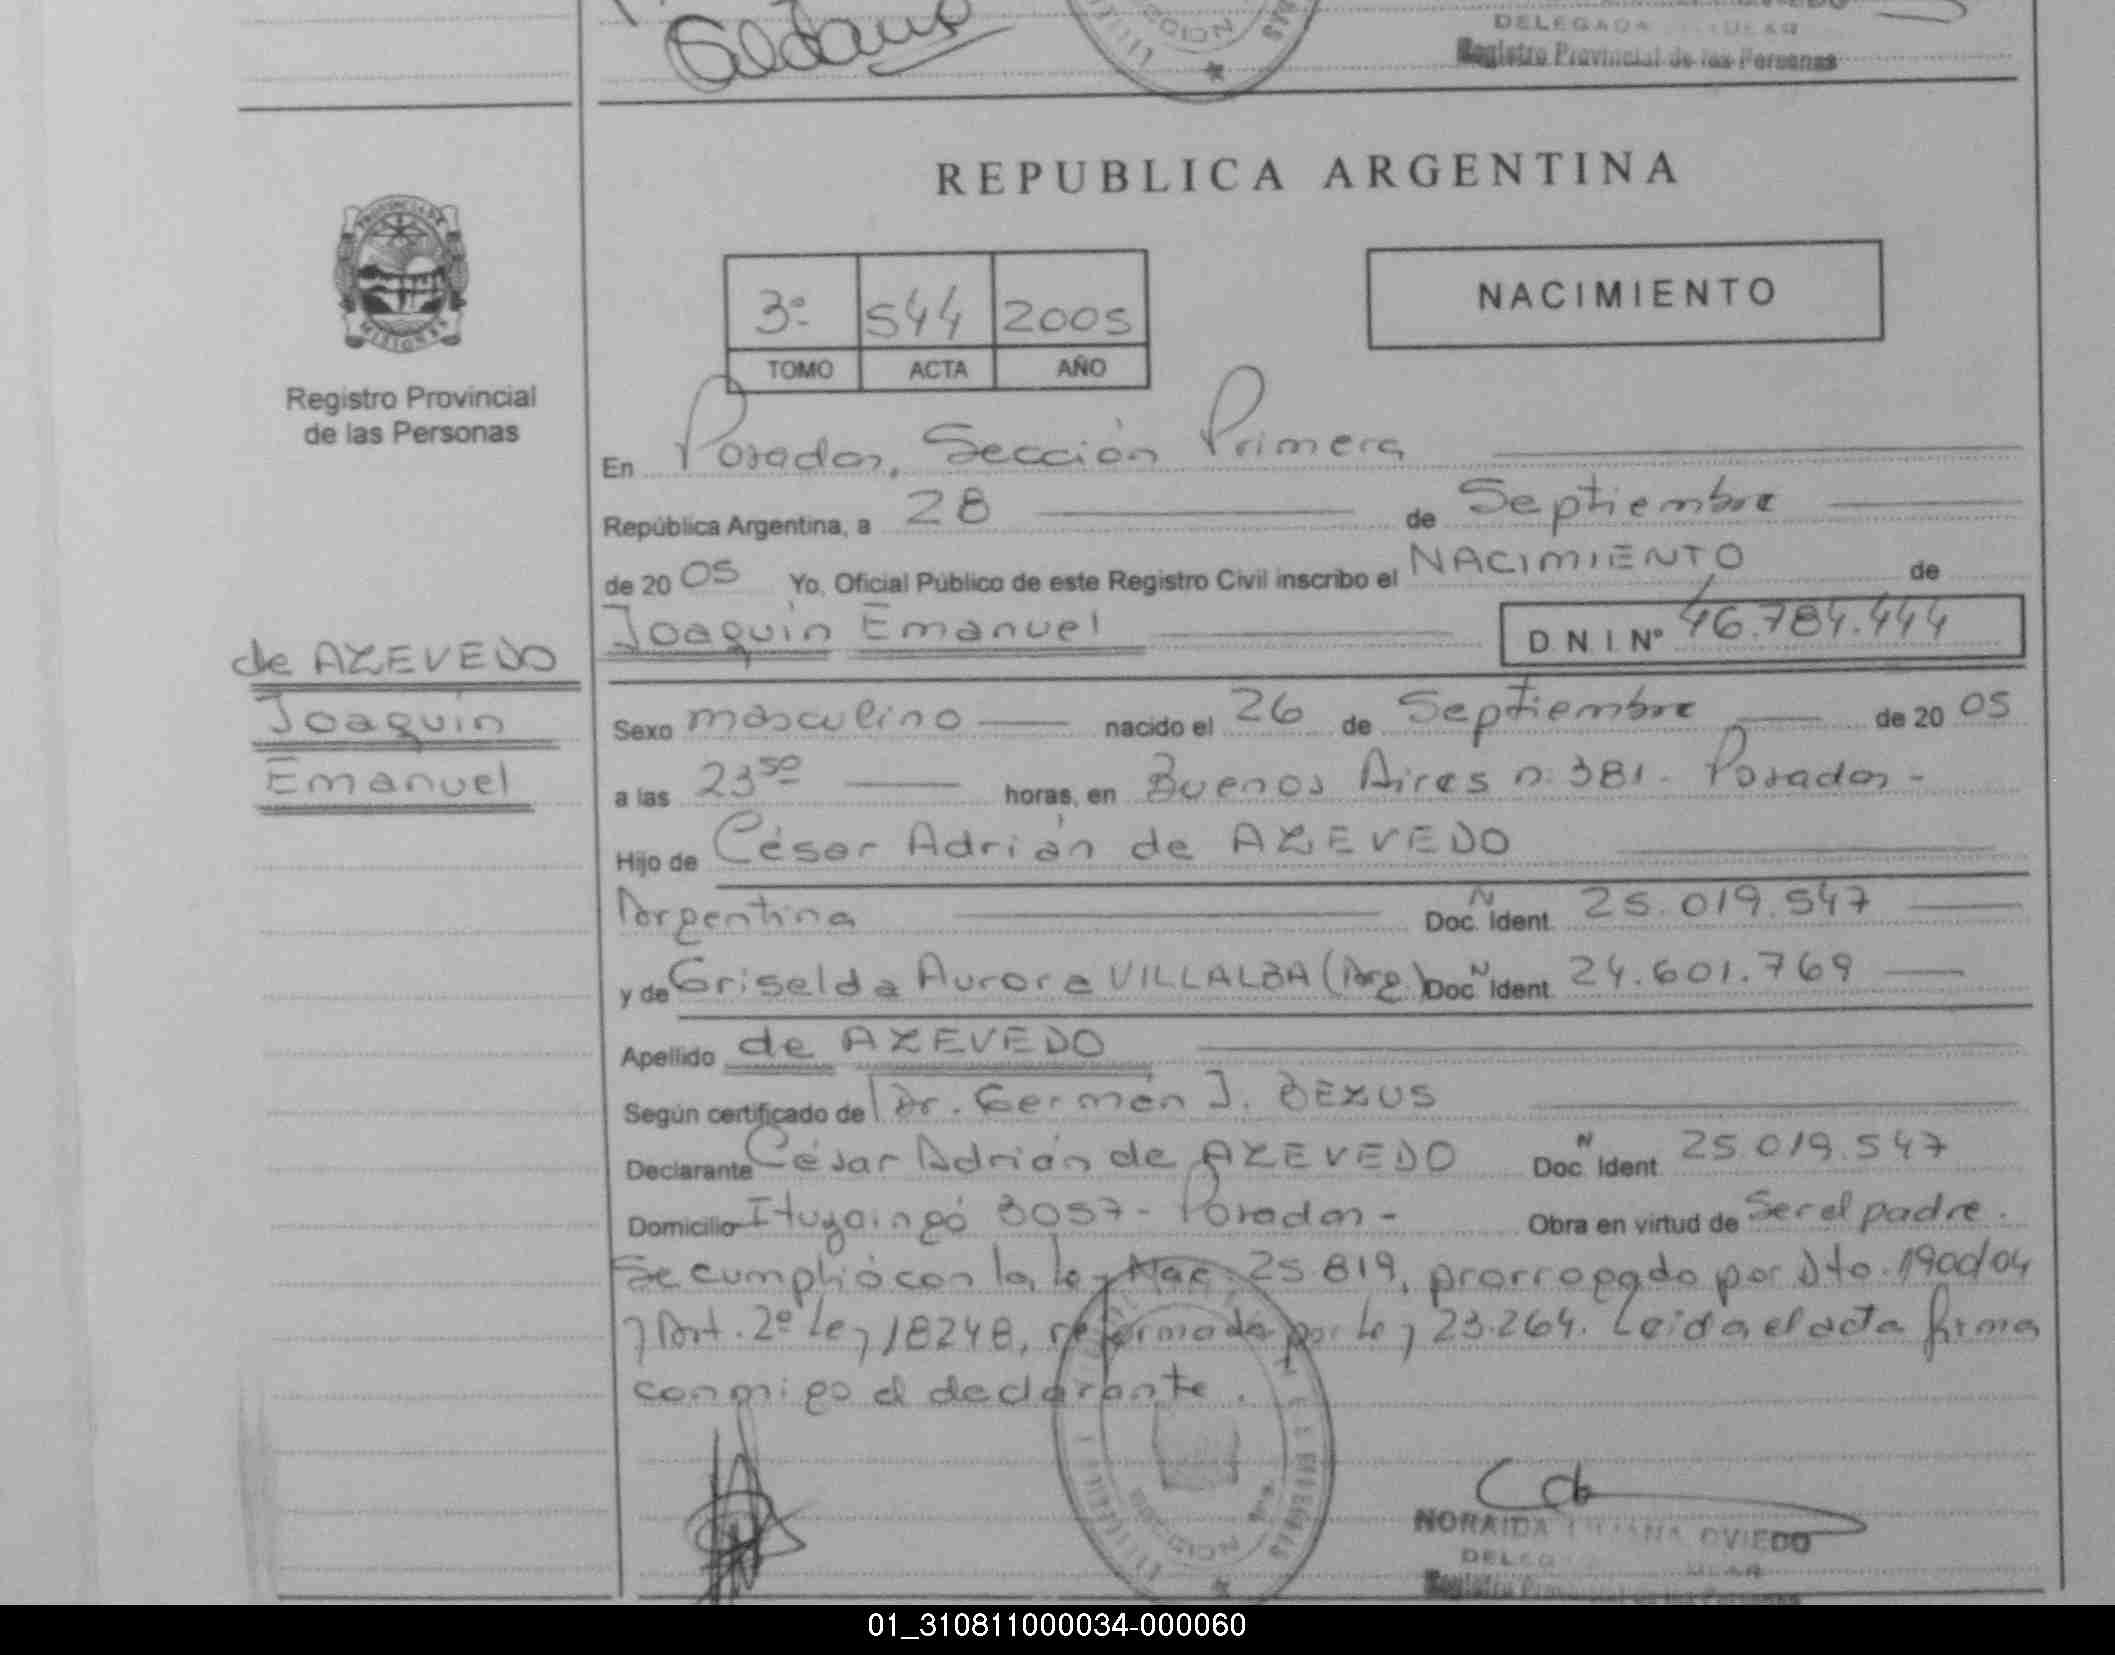 DELEGADA
Registro Provincial de las Personas
REPUBLICA ARGENTINA
PROVINCIA DE
MISIONES
Registro Provincial
de las Personas
3º 544 2005
TOMO ACTA AÑO
NACIMIENTO
En Posadas, Sección Primera
República Argentina, a 28 de Septiembre
de 20 05 Yo, Oficial Público de este Registro Civil inscribo el NACIMIENTO de
Joaquín Emanuel D.N.I. Nº 46.784.444
de AZEVEDO
Joaquín
Emanuel
Sexo masculino nacido el 26 de Septiembre de 20 05
a las 23 50 horas, en Buenos Aires n: 381 - Posadas -
Hijo de César Adrián de AZEVEDO
Argentina Doc. N Ident. 25.019.547
y de Griselda Aurora VILLALBA (Arg.) Doc. N Ident. 24.601.769
Apellido de AZEVEDO
Según certificado de Dr. Germán J. BEZUS
Declarante César Adrián de AZEVEDO Doc. N Ident. 25.019.547
Domicilio Ituzaingó 3057 - Posadas - Obra en virtud de Ser el padre.
Se cumplió con la ley Nac. 25.819, prorrogado por Dto. 190d/04
y Art. 2º Ley 18248, reformada por Ley 23.264. Leida el acta firma
conmigo el declarante.
NORAIDA LILIANA OVIEDO
Registro Provincial de las Personas
01_310811000034-000060